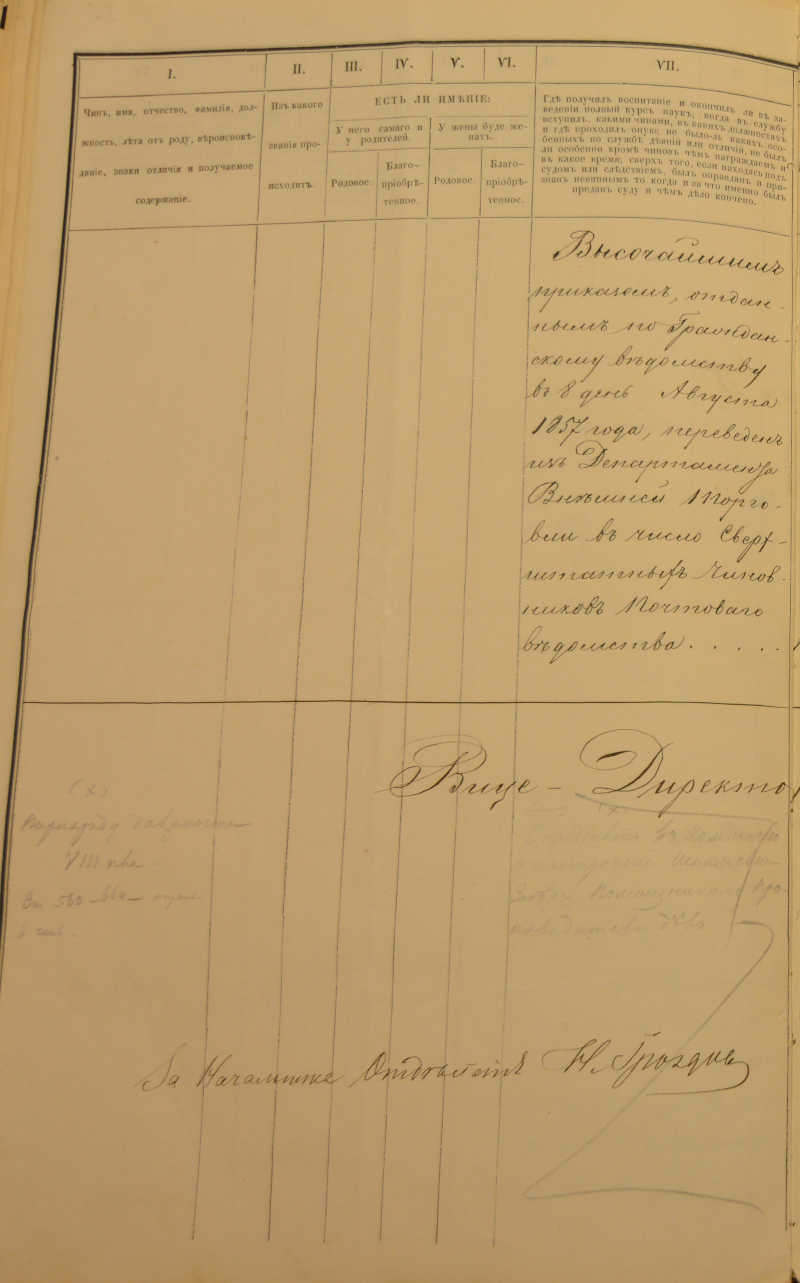 I.
II.
III.
IV.
V.
VI.
VII.
Чинъ, имя, отчество, фамилія, дол-
жность, лѣта отъ роду, вѣроисповѣ-
даніе, знаки отличія и получаемое
содержаніе.
Изъ какого
званія про-
исходитъ.
ЕСТЬ ЛИ ИМѢНІЕ:
У него самаго и
у родителей.
У жены буде же-
натъ.
Родовое.
Благо-
пріобрѣ-
тенное.
Родовое.
Благо-
пріобрѣ-
тенное.
Гдѣ получилъ воспитаніе и окончилъ ли въ за-
веденіи полный курсъ наукъ, когда въ службу
вступилъ, какими чинами, въ какихъ должностяхъ
и гдѣ проходилъ оную, не было-ль какихъ осо-
бенныхъ по службѣ дѣяній или отличій, не былъ
ли особенно кромѣ чиновъ чѣмъ награждаемъ и
въ какое время; сверхъ того, если находясь подъ
судомъ или слѣдствіемъ, былъ оправданъ и при-
знанъ невиннымъ то когда и за что именно былъ
преданъ суду и чѣмъ дѣло кончено.
Высочайшимъ
приказомъ, отдан-
нымъ по Граждан-
скому вѣдомству
въ 8 день Августа
1857 года, переведенъ
изъ Департамента
Внѣшней Торго-
вли въ число Сверх-
штатныхъ Чинов-
никовъ Почтоваго
вѣдомства . . . . .
Вице - Директо
(х)
(х)
VIII
За 560
За Начальника Отдѣленія Н. Гроздов